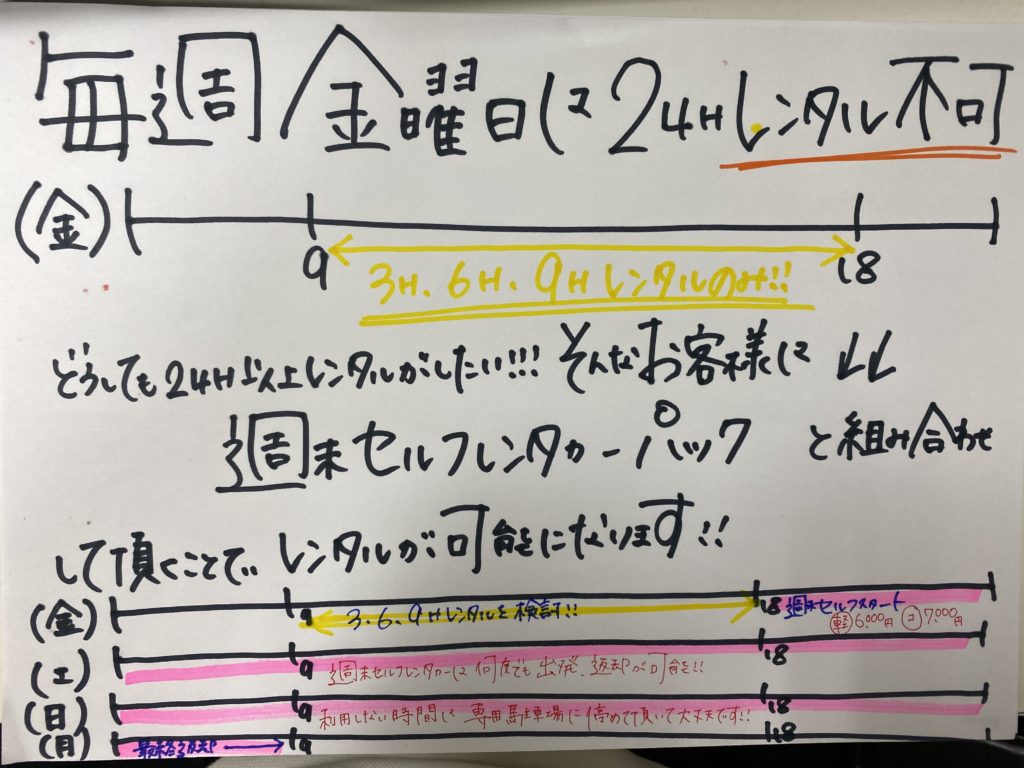 毎週金曜日は24Hレンタル不可
(金)
9 18
3H、6H、9Hレンタルのみ!!
どうしても24H以上レンタルがしたい!!! そんなお客様に ↓↓
週末セルフレンタカーパック と組み合わせ
して頂くことで レンタルが可能になります!!
(金) 9 3.6.9Hレンタルを検討!! 18 週末セルフスタート
軽6,000円 コ7,000円
(土) 9 週末セルフレンタカーは何度でも出発、返却が可能!! 18
(日) 9 利用しない時間は 専用駐車場に停めて頂いて大丈夫です!! 18
(月) 最終返却 → 9 18